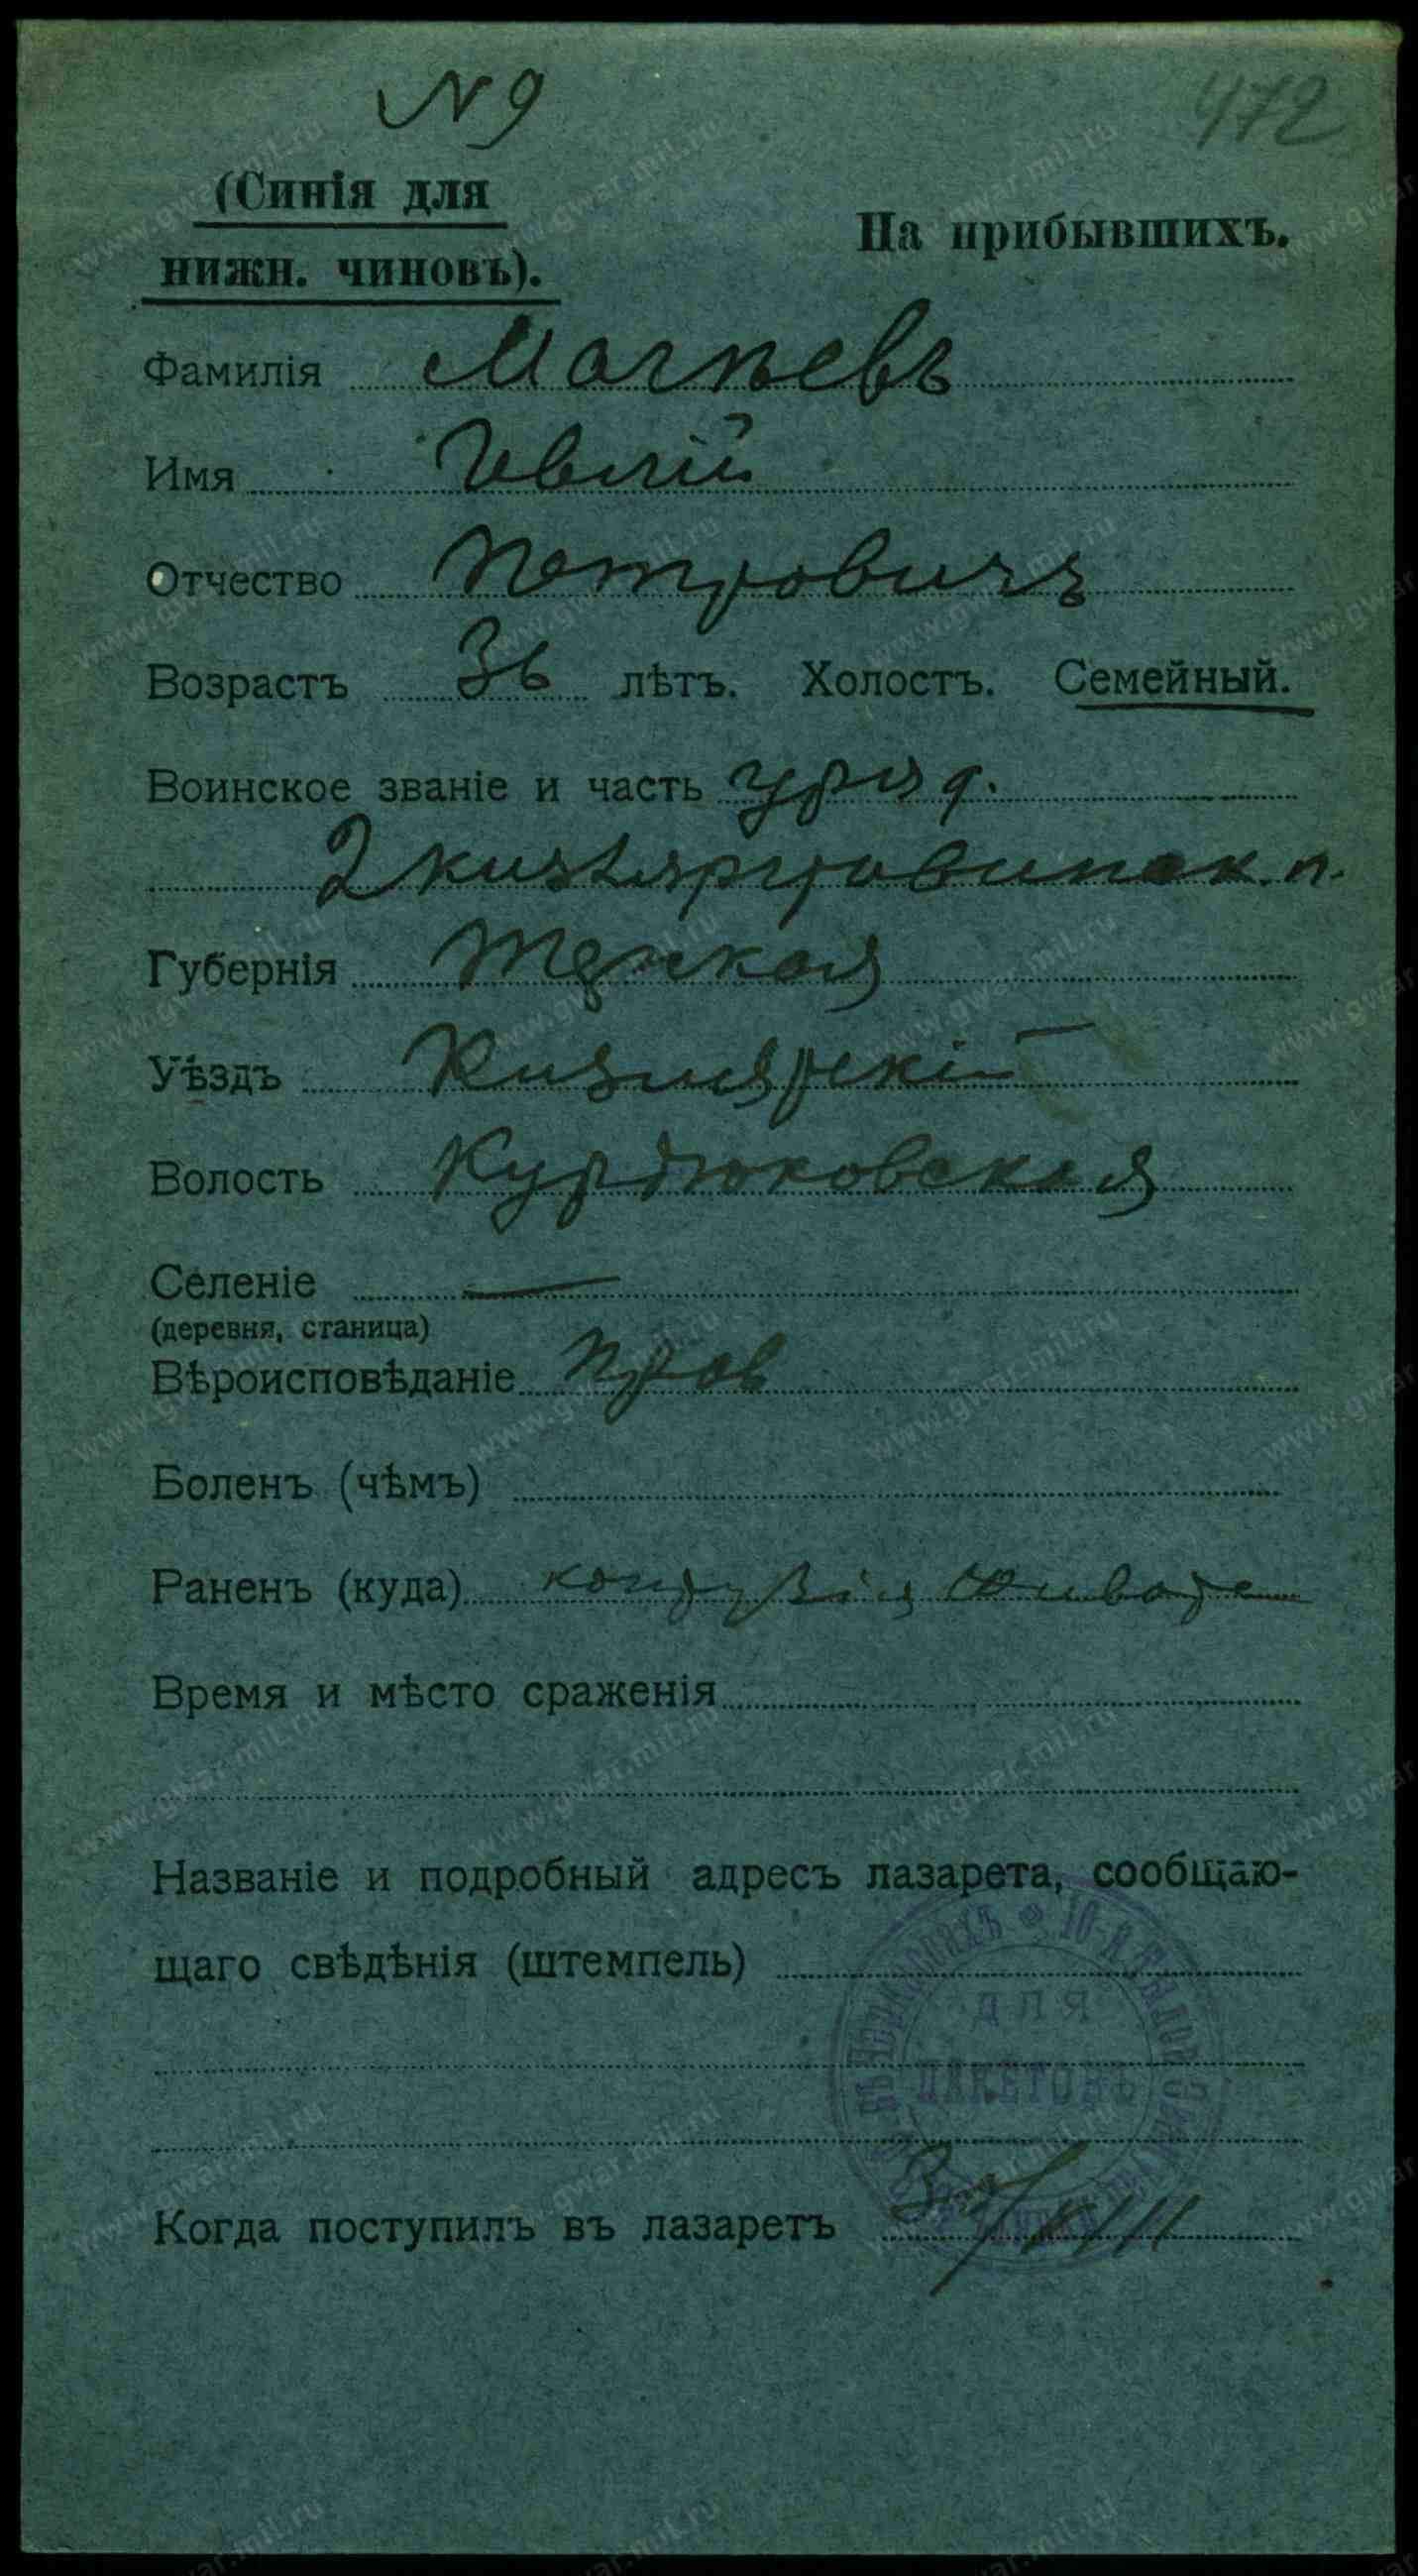 N 9
472
(Синія для
нижн. чиновъ).
На прибывшихъ.
Фамилія
Имя
Отчество Петровичъ
Возрастъ 36 лѣтъ. Холостъ. Семейный.
Воинское званіе и часть уряд.
2
Губернія Терская
Уѣздъ Кизлярскій
Волость Курдюковская
Селеніе —
(деревня, станица)
Вѣроисповѣданіе прав
Боленъ (чѣмъ)
Раненъ (куда) контузія живота
Время и мѣсто сраженія
Названіе и подробный адресъ лазарета, сообщаю-
щаго свѣдѣнія (штемпель)
ДЛЯ
ПАКЕТОВЪ
Когда поступилъ въ лазаретъ
www.gwar.mil.ru